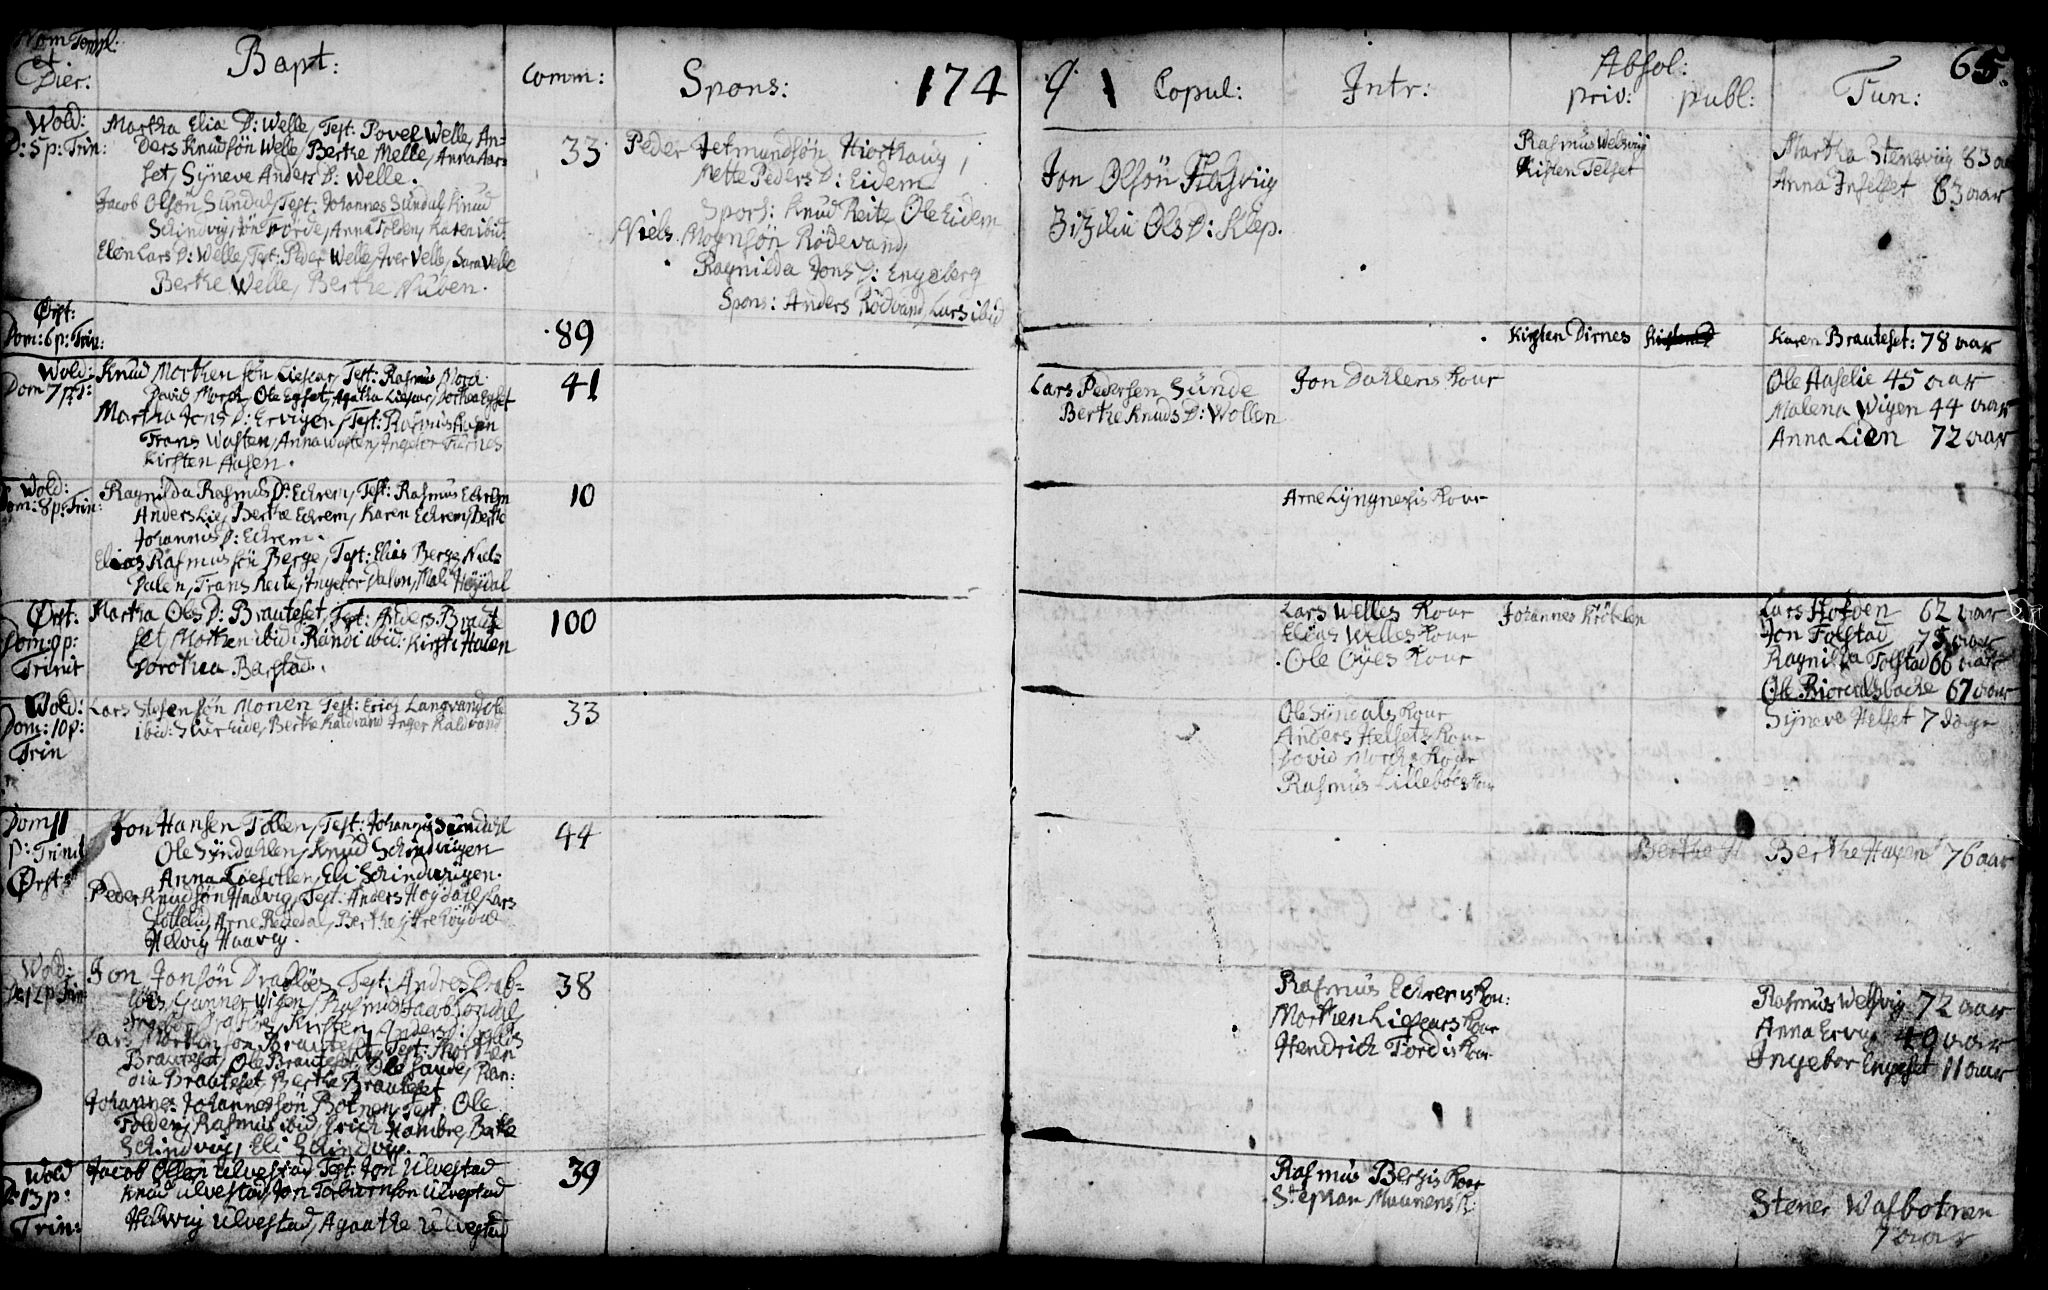 Nom Templ:
et
Dier:
Bapt:
Comm:
Spons:
174
9
Copul:
Intr:
Absol:
priv:
publ:
Fun:
65.
Wold:
D: 5 p: Trin:
Martha Eliæ D: Welle, Test: Povel Welle, An-
ders Knudsön Welle, Berthe Melle, Anna Aar-
set, Syneve Anders D: Welle.
Jacob Olsön Sundal, Test: Johannes Sundal, Knud
Schindvig, Jön Förde, Anna Folden, Karen ibid.
Elen Lars D: Welle, Test: Peder Welle, Iver Velle, Sara Velle
Berthe Welle, Berthe
33
Peder Jetmundsön Hiorthaug,
Mette Peders D: Eidem
Spons: Knud Reite Ole Eidem
Niels Mognsön Rödevand,
Ragnilda Jons D: Engeberg
Spons: Anders Rödvand, Lars ibid
Jon Olsön Fladsviig
Zitzilia Ols D: Klep.
Rasmus Welsviig
Kisten Telset
Martha Stensviig 83 aar
Anna Inselset 63 aar
Ørst:
Dom: 6 p: Trin:
89
Kirsten Dirnes
Karen Brauteset: 78 aar
Wold:
Dom 7 p Tr:
Knud Morthensön Liescar, Test: Rasmus Morch
David Morch, Ole Egset, Agatha Liescar, Dorthe Egset
Martha Jens D: Ervigen, Test: Rasmus Aasen
Frans Wasten, Anna Wasten, Ingebor Furnes
Kirsten Aasen.
41
Lars Pedersen Sünde
Berthe Knuds D: Wollen
Jon Dahlens Kour
Ole Haselie 45 aar
Malena Wigen 44 aar
Anna Liden 72 aar
Wold:
Dom: 8 p: Trin:
Ragnilda Rasmus D: Echrem, Test: Rasmus Echrem
Anders Lie, Berthe Echrem, Karen Echrem, Berthe
Johannis D: Echrem.
Elias Rasmussön Berge, Test: Elias Berge, Niels
Dalen, Frans Reite, Ingebor Dalen, Mali Höydal
10
Arne Lyngnesis Kour
Ørst:
Dom: 9 p:
Trinit
Martha Ols D: Brauteset, Test: Anders Braute
set, Morthen ibid: Rundi ibid: Kirsti Halen
Dorothea Barstad.
100
Lars Welles Kour
Elias Welles Kour
Ole Oyes Kour
Johannes Kröbelen
Lars Hofden 62 aar
Jon Folstad 75 aar
Ragnilda Folstad 66 aar
Ole Riordalsbache 67 aar
Wold:
Dom: 10 p:
Trin
Lars Stefensön Monen Test: Erich Langvand Ole
ibid: Siver Eide, Berthe Kaldvand Inger Kaldvand
33
Ole Sündals Kour
Anders Helsets Kour
David Morchs Kour
Rasmus Lilleböes Kour
Syneve Helset 7 dage
Dom 11
p: Trinit
Ørst:
Jon Hansen Follen, Test: Johannis Sündahl
Ole Syndahlen, Knud Schindviigen
Anna, Eli Schindwigen.
Peder Knudsön Haavig, Test: Anders Høydal, Lars
Arne Rededal, Berthe Høydal
Helvig Haavig.
44
Berthe H
Berthe Hagen 76 aar
Wold:
De 12 p Trin
Jon Jonsön Drabløes, Test: Andres Drab-
löes, Gunner Wigen, Rasmus Jacob
Ingebor Drabløs, Kirsten Anders D: Drabløs
Lars Morthensön Brauteset, Test: Morthen
Brauteset, Ole Brauteset, Ole Sande, Ran-
dia Brauteset, Berthe Brauteset
Johannes Johannessön Botnen, Test: Ole
Folden, Rasmus ibid, Erich Hambre, Berthe
Schindvig, Eli Schindvig.
38
Rasmus Echrems Kou:
Morthen Liescars Kour
Hendrich Fordis Kour
Rasmus Welsvig 72 aar
Anna Ervig 49 aar
Ingebor Engeset 11 aar
Wold
D: 13 p:
Trin:
Jacob Olsen Ulvestad Test: Jon Ulvestad
Knud Ulvestad, Jon Torbiørnsön Ulvestad
Helvig Ulvestad, Agaathe Ulvestad
39
Rasmus Bergis Kour
Stephan Maurens K:
Stener Wasbotnen
7 aar